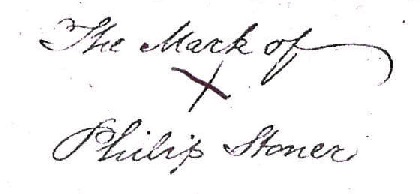 The Mark of
X
Philip Stoner